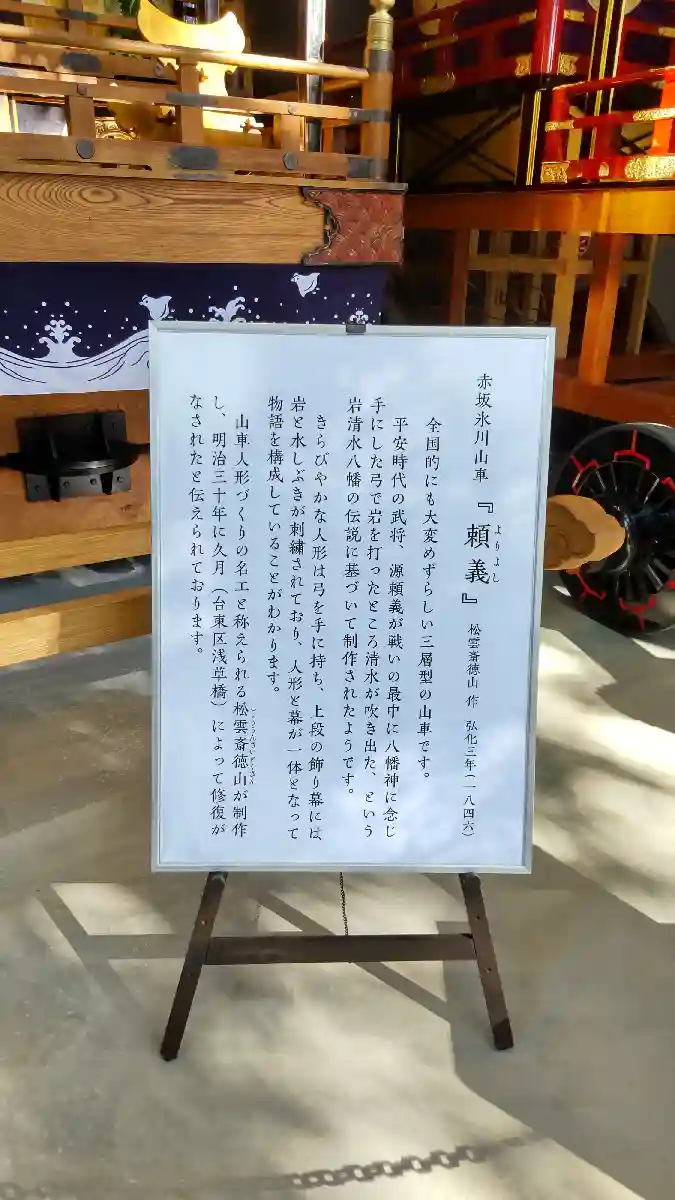 赤坂氷川山車『頼義』 松雲斎徳山 作 弘化三年(一八四六)
よりよし
全国的にも大変めずらしい三層型の山車です。
平安時代の武将、源頼義が戦いの最中に八幡神に念じ
手にした弓で岩を打ったところ清水が吹き出た、という
岩清水八幡の伝説に基づいて制作されたようです。
きらびやかな人形は弓を手に持ち、上段の飾り幕には
岩と水しぶきが刺繍されており、人形と幕が一体となって
物語を構成していることがわかります。
山車人形づくりの名工と称えられる松雲斎徳山が制作
しょううんさいとくさん
し、明治三十年に久月(台東区浅草橋)によって修復が
なされたと伝えられております。